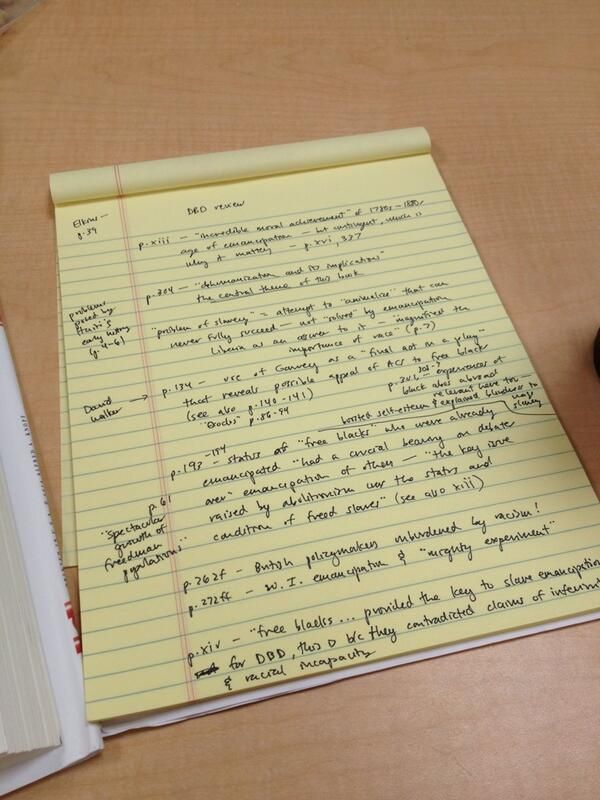 DBD review
Elkins —
p. 39
p. xiii — "incredible moral achievement" of 1780s – 1880s
age of emancipation — but contingent, which is
why it matters — p. xvi, 337
p. 304 — "dehumanization and its implications"
the central theme of this book
problems
posed by
Haiti's
early history
(p. 4-6)
"problem of slavery" = attempt to "animalize" that can
never fully succeed — not "solved" by emancipation
Liberia as an answer to it — "magnified the
importance of race" (p. 7)
David
Walker →
p. 134 — use of Garvey as a "final act in a play"
that reveals possible appeal of ACS to free black
(see also p. 140-141)
"Exodus" p. 86-94
experiences of
black abos abroad
relevant here too —
boosted self-esteem & explained blindness to
wage
slavery
p. 193-194 — status of "free blacks" who were already
emancipated "had a crucial bearing on debate
over emancipation of others — "the key issue
raised by abolitionism was the status and
condition of freed slaves" (see also xiii)
p. 61
"spectacular
growth of
freedman
populations"
p. 262f — British policymakers unburdened by racism!
p. 272ff — W. I. emancipation & "mighty experiment"
p. xiv — "free blacks ... provided the key to slave emancipation
for DBD, this b/c they contradicted claims of
& racial incapacity